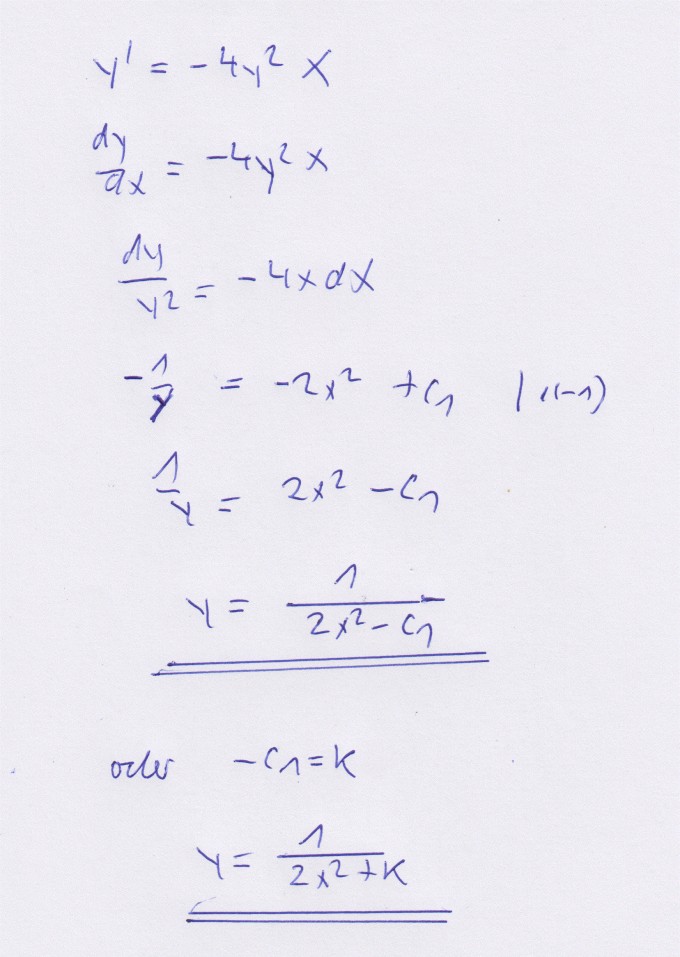 y' = -4y² x
dy/dx = -4y² x
dy/y² = -4x dx
-1/y = -2x² + C₁ | ·(-1)
1/y = 2x² - C₁
y = 1/(2x² - C₁)
oder -C₁ = K
y = 1/(2x² + K)